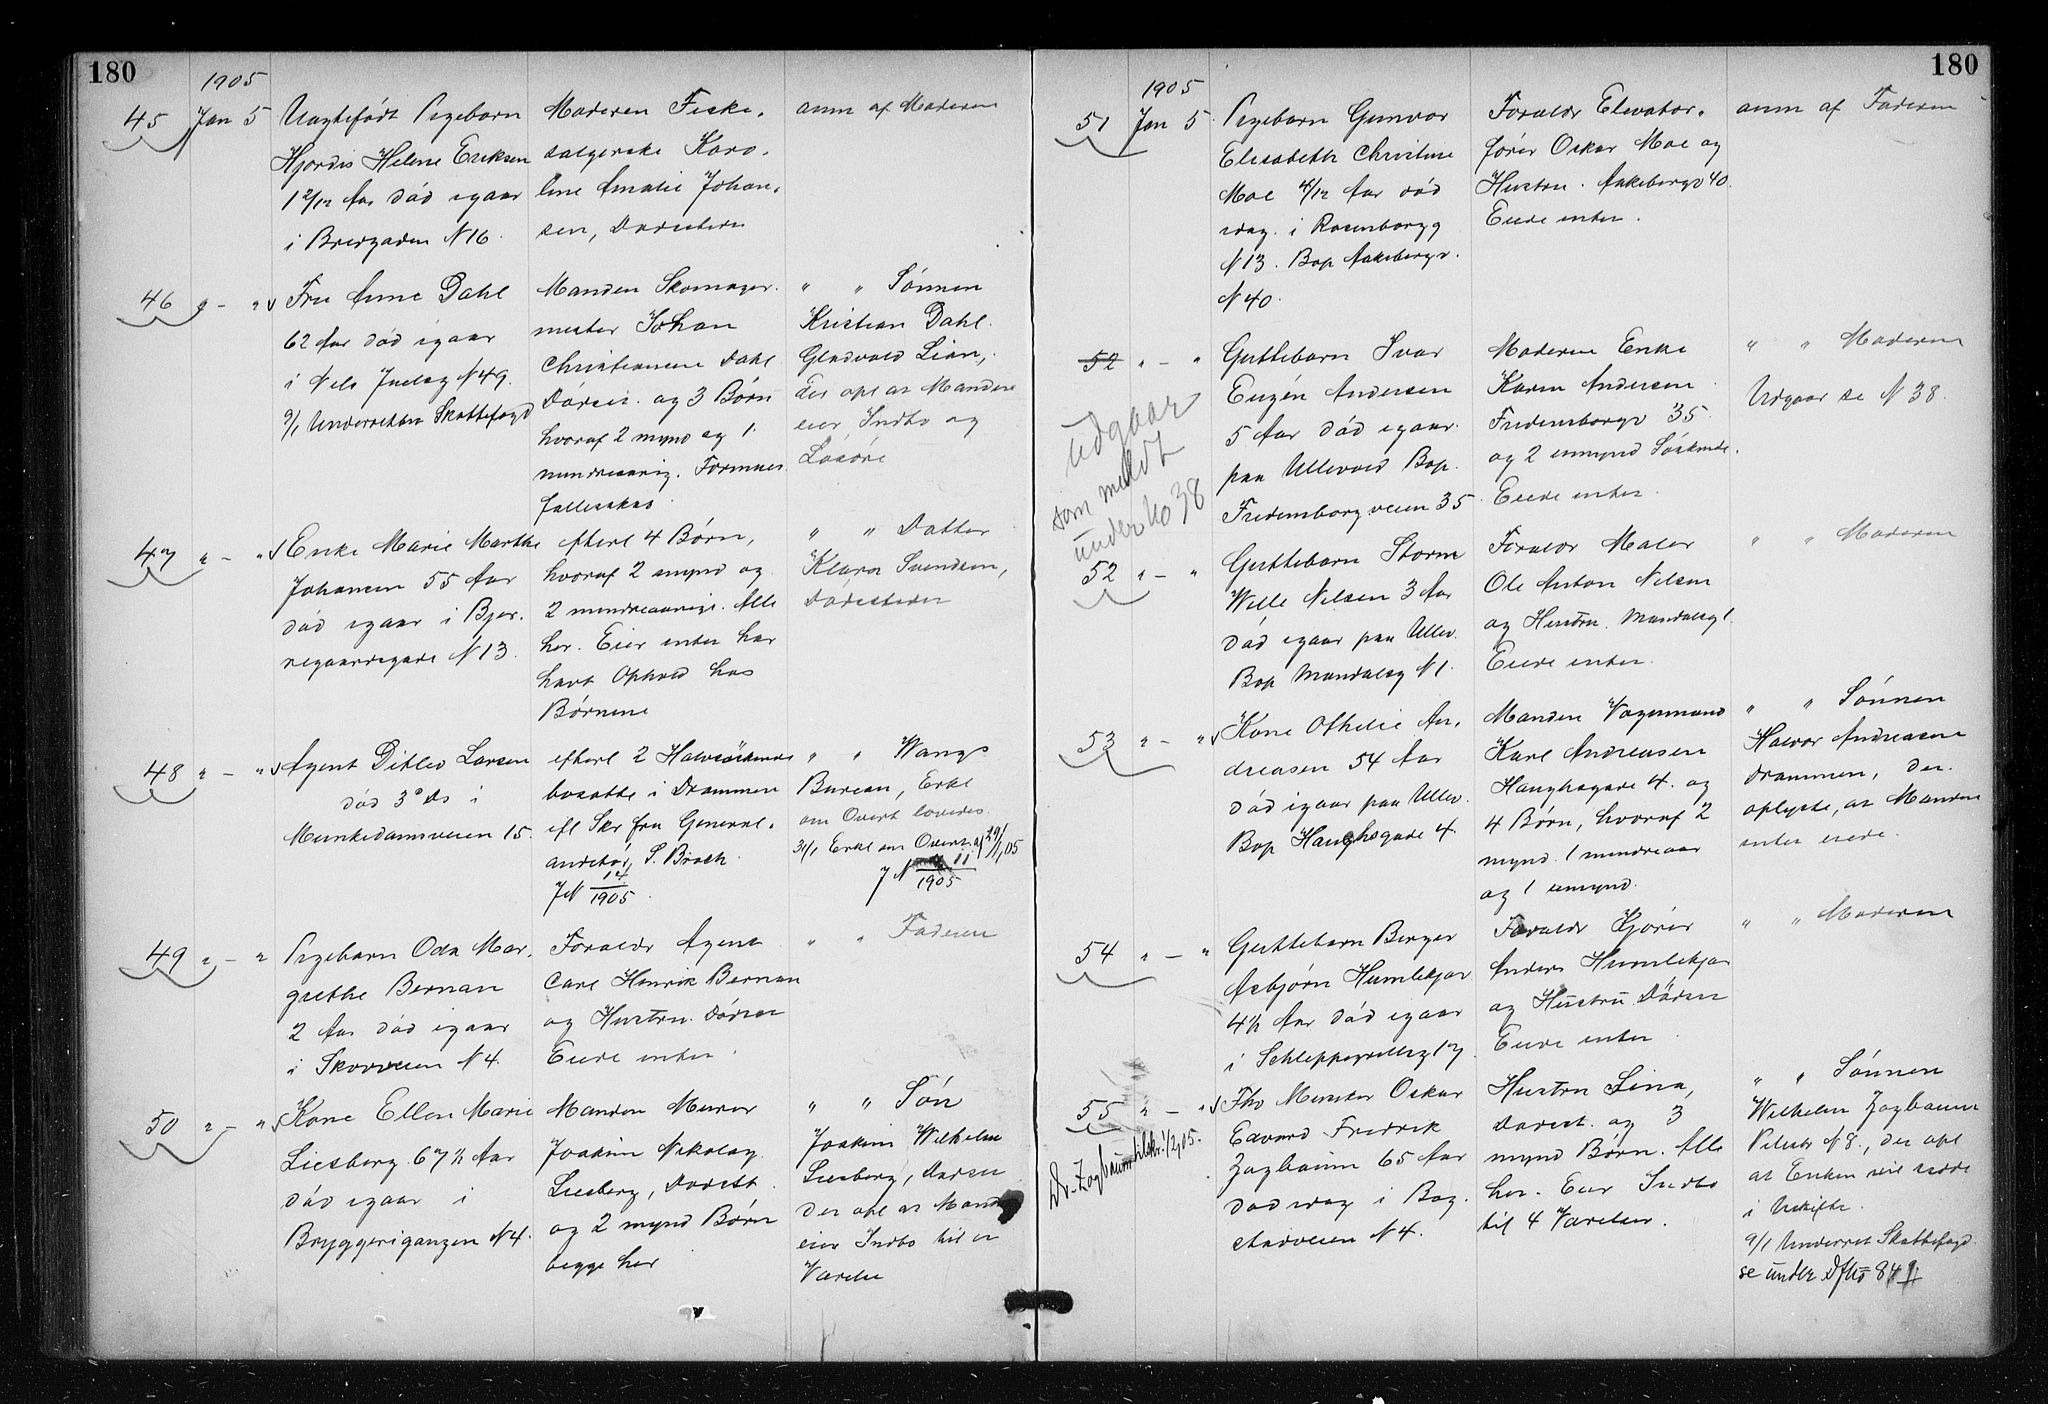 180
1905
45 Jan 5
Uægtefødt Pigebarn
Hjørdis Helene Eriksen
1 2/12 Aar død igaar
i Bredgaden N 16.
Moderen Fiske-
sælgerske Karo-
line Amalie Johan-
sen, Dødsstedn
anm af Moderen
46 " - "
Fru Anne Dahl
62 Aar død igaar
i Nels Juelsg N 49.
9/1 Underrettan Skattefogd
Manden Skomager-
mester Johan
Christiansen Dahl
Dødsst. og 3 Børn
hvoraf 2 mynd og 1
mindreaarig. Formues
fællesskab.
" " Sønnen
Kristian Dahl.
Gladvold Lian,
der opl at Manden
eier Indbo og
Løsøre
47 " - "
Enke Marie Marthe
Johansen 55 Aar
død igaar i Bjer-
regaardsgade N 13.
efterl 4 Børn,
hvoraf 2 mynd og
2 mindreaarige. Alle
her. Eier intet har
havt Ophold hos
Børnene
" " Datter
Klara Svendsen,
Dødsstedn
48 " - "
Agent Ditlev Larsen
død 3' ds i
Munkedamsveien 15.
efterl 2 Halvsøskende
bosatte i Drammen
efl Skr fra General-
andtør, S. Broch.
J N 14/1905.
" " Wangs
Bureau, Erkl
om Overt lovedes.
31/1 Erkl om Overt. af 29/1 05
J N 11/1905
49 " - "
Pigebarn Oda Mar-
grethe Bernan
2 Aar død igaar
i Skovveien N 4.
Foraldr Agent
Carl Henrik Bernan
og Hustru. Dødsst
Eiede intet.
" " Faderen
50 " - "
Kone Ellen Marie
Liesberg 67 1/2 Aar
død igaar i
Bryggerigangen N 4.
Manden Murer
Joakim Nikolay
Liesberg, Dødsst
og 2 mynd Børn
begge her
" " Søn
Joakim Wilhelm
Liesberg, Dødsst
der opl at Mand
eier Indbo til et
Værelse
180
1905
51 Jan 5
Pigebarn Gunvor
Elisabeth Christine
Moe 4/12 Aar død
idag. i Rosenborgg
N 13. Bop Aakebergv.
N 40.
Foraldr Elevator-
fører Oskar Moe og
Hustru. Aakebergv 40.
Eiede intet.
anm af Faderen
52 " - "
Udgaar
som meldt
under No 38
Guttebarn Ivar
Eugén Andersen
5 Aar død igaar.
paa Ullevold Bop.
Fredensborgveien 35
Moderen Enke
Karen Andersen
Fredensborgv 35
og 2 umynd Søskende.
Eiede intet.
" " Moderen
Udgaar se N 38.
52 " - "
Guttebarn Storm
Wille Nilsen 3 Aar
død igaar paa Ullev.
Bop Mandalsg N 1.
Foraldr Maler
Ole Anton Nilsen
og Hustru. Mandalsg 1.
Eiede intet.
" " Moderen
53 " - "
Kone Othelie An-
dreasen 54 Aar
død igaar paa Ullev.
Bop Haughsgade 4.
Manden Vognmand
Karl Andreasen
Haughsgade 4. og
4 Børn, hvoraf 2
mynd. 1 mindreaar
og 1 umynd.
" " Sønnen
Halvor Andreasen
Drammen, der
oplyste, at Manden
intet eiede.
54 " - "
Guttebarn Berger
Asbjørn Humlekjær
4 1/2 Aar død igaar
i Schleppegrellsg 17
Foraldr Kjører
Anders Humlekjær
og Hustru Dødsst
Eiede intet
" " Moderen
55 " - "
Dr. Zogbaum tilskr. 1/2, 05.
Fhv Musiker Oskar
Edvard Fredrik
Zogbaum 65 Aar
død idag i Bog-
stadveien N 4.
Hustru Lina,
Dødsst. og 3
mynd Børn. Alle
her. Eier Indbo
til 4 Værelser.
" " Sønnen
Wilhelm Zogbaum
Pilestr N 8., der opl
at Enken vil sidde
i Uskifte.
9/1 Underret Skattefogd.
se under Dfno 849